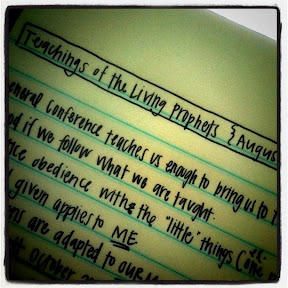 Teachings of the Living Prophets { Augus
General Conference teaches us enough to bring us to
od if we follow what we are taught.
obedience with the "little" things (one
given applies to ME.
ns are adapted to our
October